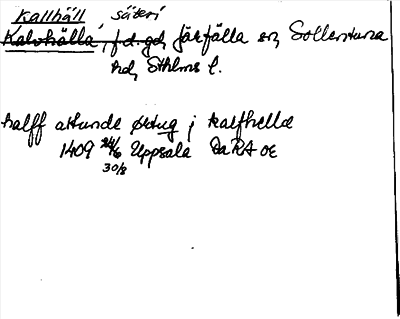 Kallhäll, säteri
Kalvhälla, f.d. gd, Järfälla sn, Sollentuna
hd, Sthlms l.
halff attunde øktug j kalfhelle
1409 24/6 Uppsala DaRA OE
30/8